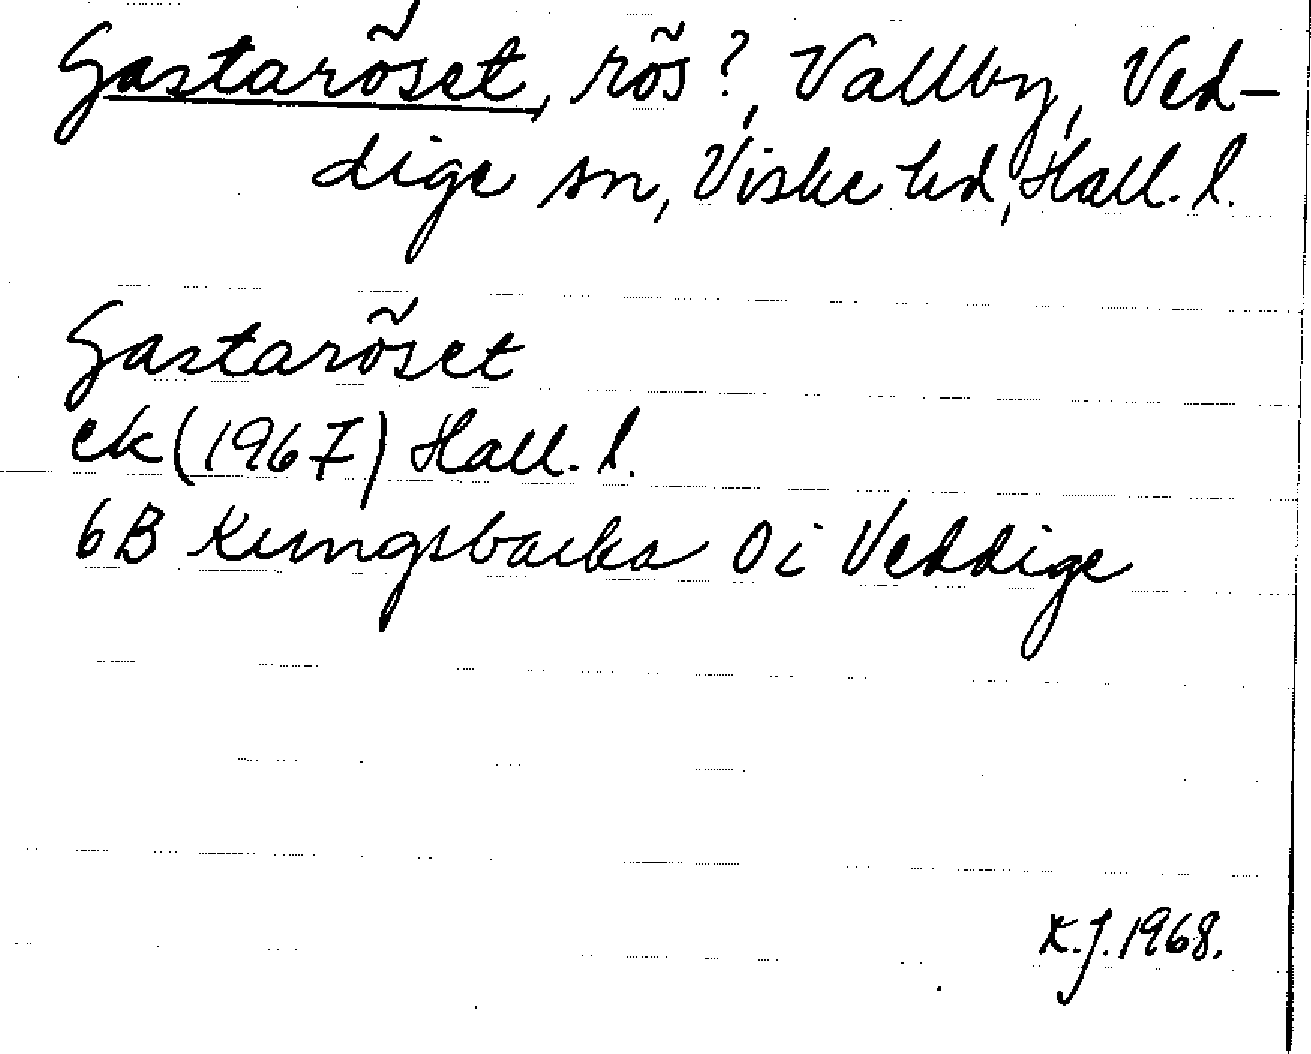 Gastaröset, rös?, Vallby, Ved-
dige sn, Viske hd, Hall. l.
Gastaröset
ek (1967) Hall. l.
6B Kungsbacka 0 i Veddige
K.J. 1968.